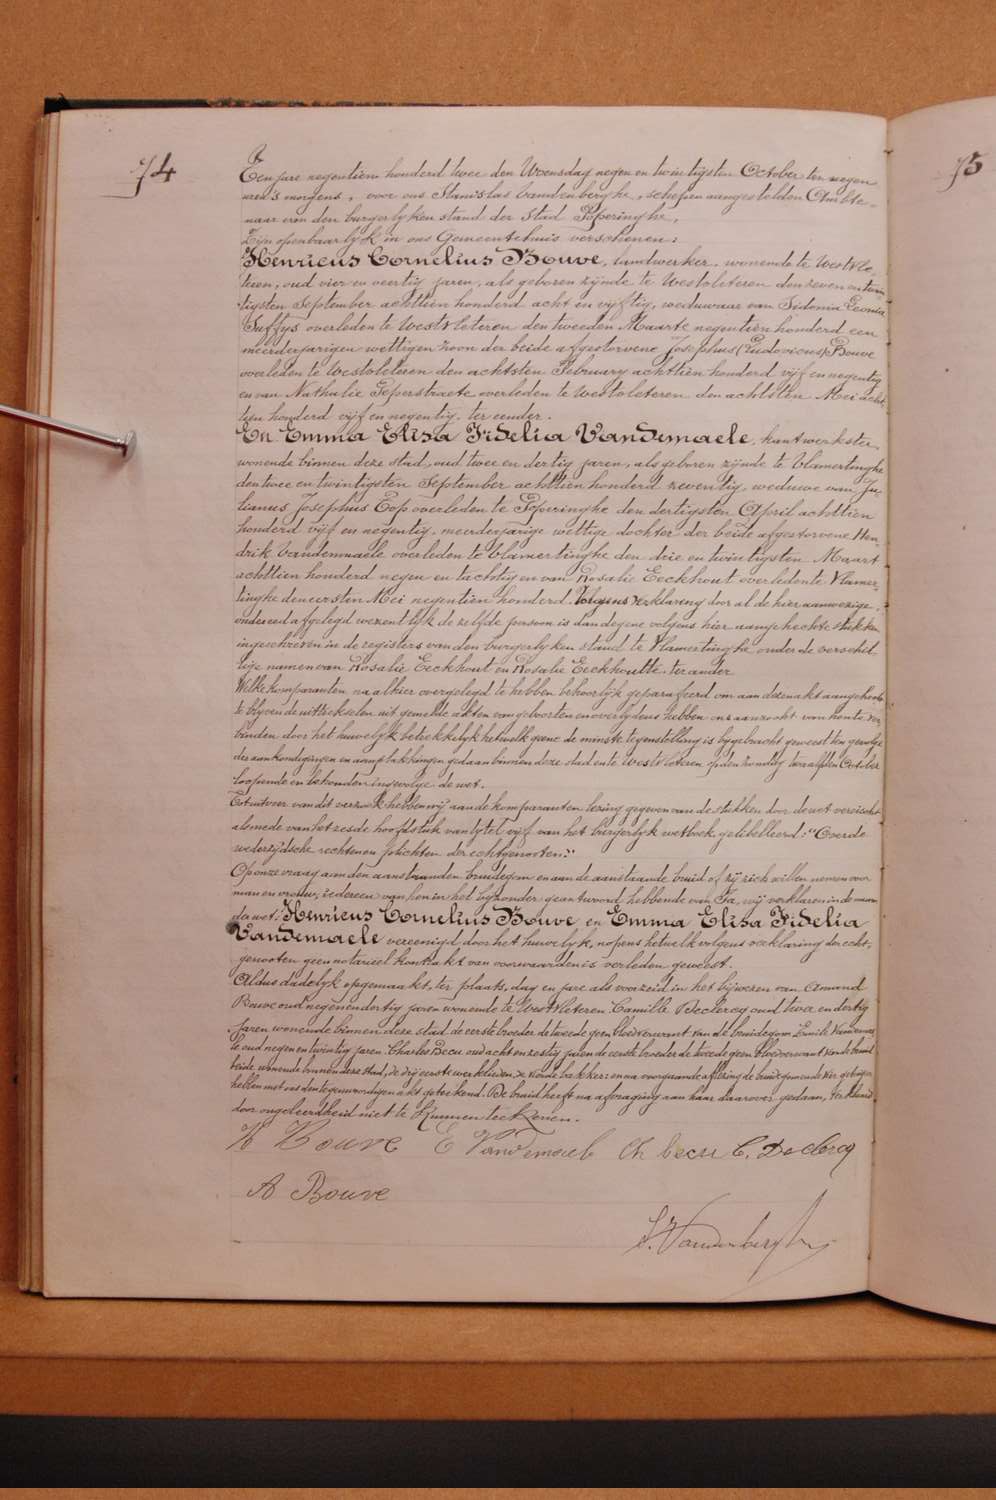 74
75
Ten jare negentien honderd twee den Woensdag negen en twintigsten October ten negen
ure 's morgens, voor ons Stanislas Vandenberghe, schepen aangestelden Ambte-
naar van den burgerlyken stand der stad Poperinghe,
Zijn openbaarlijk in ons Gemeentehuis verschenen:
Henricus Cornelius Bouve, landwerker, wonende te Westvle-
teren, oud vier en veertig jaren, als geboren zijnde te Westvleteren den zeven en twin-
tigsten September achttien honderd acht en vijftig, weduwaar van Sidonia Leonia
Suffys overleden te Westvleteren den tweeden Maarte negentien honderd een
meerderjarigen wettigen zoon der beide afgestorvene Josephus (Ludovicus) Bouve
overleden te Westvleteren den achtsten February achttien honderd vijf en negentig
en van Nathalie Peperstraete overleden te Westvleteren den achtsten Mei acht-
tien honderd vijf en negentig, ter eender.
En Emma Elisa Fidelia Vandemaele, kantwerkster,
wonende binnen deze stad, oud twee en dertig jaren, als geboren zijnde te Vlamertinghe
den twee en twintigsten September achttien honderd zeventig, weduwe van Ju-
lianus Josephus Top overleden te Poperinghe den dertigsten April achttien
honderd vijf en negentig, meerderjarige wettige dochter der beide afgestorvene Hen-
drik Vandemaele overleden te Vlamertinghe den drie en twintigsten Maart
achttien honderd negen en tachtig en van Rosalie Eeckhout overleden te Vlamer-
tinghe den eersten Mei negentien honderd. Volgens verklaring door al de hier aanwezige
onder eed afgelegd wezentlijk de zelfde persoon is dan degene volgens hier aangehechte stukken
ingeschreven in de registers van den burgerlyken stand te Vlamertinghe onder de verschil-
lige namen van Rosalie Eeckhout en Rosalie Eeckhoutte. ter ander
Welke komparanten na alhier overgelegd te hebben behoorlijk geparafeerd om aan dezen akt aangehecht
te blyven de uittrekselen uit gemelde akten van geboorten en overlydens hebben ons aanzocht van hen te ver-
binden door het huwelyk betrekkelyk hetwelk geene de minste tegenstelling is bygebracht geweest ten gevolge
der aankondigingen en aanplakkingen gedaan binnen deze stad en te Westvleteren op den zondag twaalfden October
loopende en behouden ingevolge de wet.
En uitvoer van dit verzoek hebben wij aan de komparanten lezing gegeven van de stukken door de wet vereischt
alsmede van het zesde hoofdstuk van tytel vijf van het burgerlyk wetboek gelibelleerd: "Over de
wederzijdsche rechten en plichten der echtgenooten."
Op onze vraag aan den aanstaanden bruidegom en aan de aanstaande bruid of zij zich willen nemen voor
man en vrouw, iedereen van hen in het byzonder geantwoord hebbende van Ja, wij verklaren in de naam
der wet: Henricus Cornelius Bouve en Emma Elisa Fidelia
Vandemaele vereenigd door het huwelyk, nopens hetwelk volgens verklaring der echt-
genooten geen notarieel kontrakt van voorwaarden is verleden geweest.
Aldus dadelyk opgemaakt, ter plaats, dag en jare als voorzeid in het bijwezen van Amand
Bouve oud negen en dertig jaren wonende te Westvleteren. Camille Declercq oud twee en dertig
jaren wonende binnen deze stad de eerste broeder de tweede geen bloedverwant van de bruidegom Emile Vandemae-
le oud negen en twintig jaren Charles Becu oud acht en zestig jaren de eerste broeder de tweede geen bloedverwant van de bruid
beide wonende binnen deze stad, de drij eerste werklieden, de vierde bakker: en na voorgaande aflezing de bruidegom en de vier getuigen
hebben met ons den tegenwoordigen akt geteekend. De bruid heeft na afvraging aan haar daarover gedaan, verklaard
door ongeleerdheid niet te kunnen teekenen.
H Bouve E Vandemaele Ch becu C. Declercq
A Bouve
S. Vandenberghe